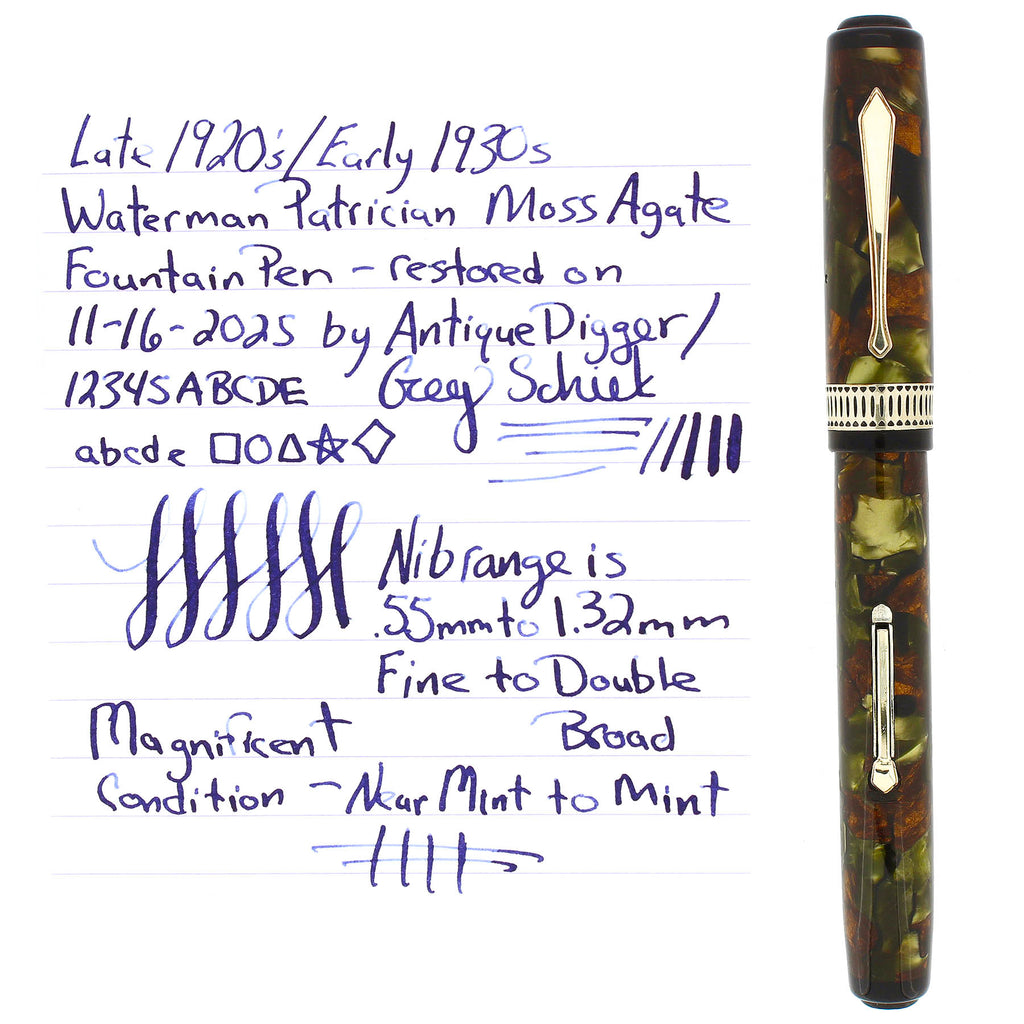 Late 1920's/Early 1930s
Waterman Patrician Moss Agate
Fountain Pen - restored on
11-16-2025 by AntiqueDigger/
12345 ABCDE Greg Schiek
abcde
Nib range is
.55mm to 1.32mm
Fine to Double
Broad
Magnificent
Condition - Near Mint to Mint